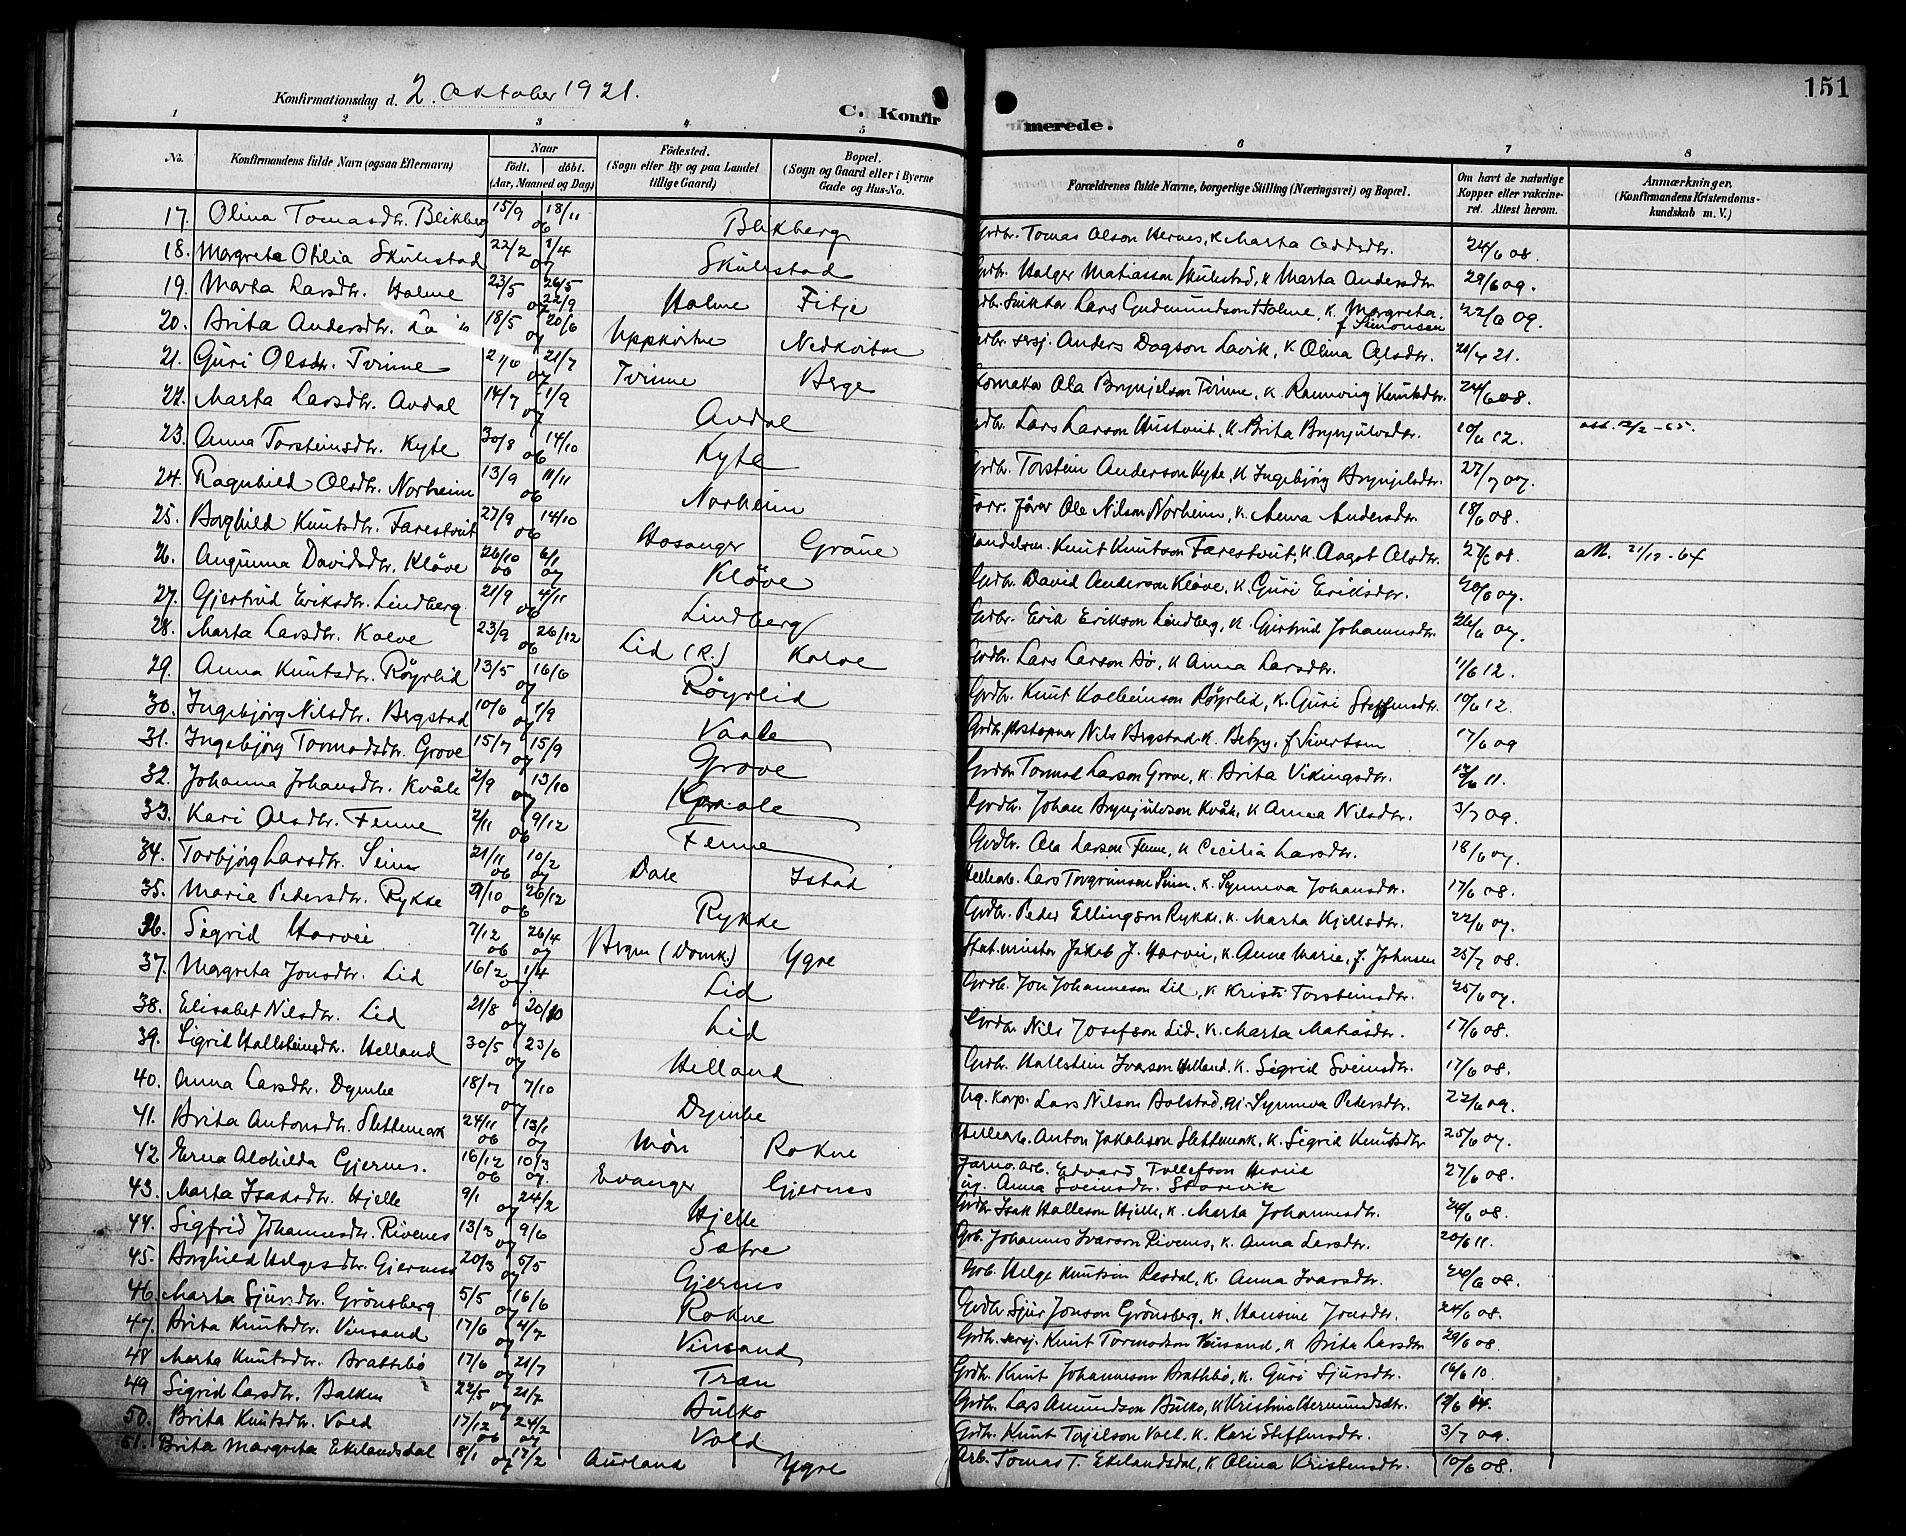 151
Konfirmationsdag d. 2. Oktober 1921.
C. Konfirmerede.
1 2 3 4 5 6 7 8
No. Konfirmandens fulde Navn (ogsaa Efternavn) Naar født. døbt. (Aar, Maaned og Dag) Fødested. (Sogn eller By og paa Landet tillige Gaard) Bopæl. (Sogn og Gaard eller i Byerne Gade og Hus-No. Forældrenes fulde Navne, borgerlige Stilling (Næringsvei) og Bopæl. Om havt de naturlige Kopper eller vakcineret. Attest herom. Anmærkninger. (Konfirmandens Kristendomskundskab m. V.)
17. Olina Tomasdtr. Blikberg 15/9 06 18/11 Blikberg Grdbr. Tomas Olson Hernes, k. Marta Oddsdtr. 24/6 08.
18. Margreta Otilia Skulestad 22/2 07 1/4 Skulestad Grdbr. Holger Matiasson Skulestad, k Marta Andersdtr 29/6 09.
19. Marta Larsdtr. Holme 23/5 07 26/5 22/9 Holme Fitje Snikkar Lars Gudmundson Holme, k. Margreta f. Simonsen 22/6 09.
20. Brita Andersdtr. 18/5 07 20/6 Uppkvitne Nedkvitne sersj. Anders Dagson Lavik, k Olina Olsdtr. 21.
21. Guri Olsdtr. Tvinne 07 21/7 Tvinne Berge Ola Brynjelson Tvinne, k. Rannveig Knutsdtr. 24/6 08.
22. Marta Larsdtr. Avdal 14/7 07 1/9 Avdal Lars Larson Hustveit, k. Brita Brynjulvsdtr. 10/6 12.
23. Anna Torsteinsdtr. Kyte 30/8 06 14/10 Kyte Grdbr. Torstein Anderson Kyte, k Ingebjørg Brynjelsdtr. 27/7 07.
24. Ragnhild Olsdtr. Norheim 13/9 06 11/11 Norheim Ole Nilson Norheim, k. Anna Andersdtr 18/6 08.
25. Borghild Knutsdtr. Farestveit 27/9 06 14/10 Hosanger Gråue Handelsm. Knut Knutson Farestveit, k. Aagot Olsdtr. 27/6 08. att. 21/12 - 64
26. Angunna Davidsdtr. Kløve 26/10 06 6/1 07 Kløve Grdbr. David Anderson Kløve, k. Guri Eriksdtr. 20/6 07.
27. Gjertrud Eriksdtr. Lindberg 21/9 06 4/11 Lindberg Grdbr. Erik Erikson Lindberg, k. Gjertrud Johannesdtr. 26/6 07.
28. Marta Larsdtr. Kolve 23/9 06 26/12 Lid (R.) Kolve Grdbr. Lars Larson Bø, k Anna Larsdtr. 11/6 12.
29. Anna Knutsdtr. Røyrlid 13/5 07 16/6 Røyrlid Grdbr. Knut Kolbeinson Røyrlid, k. Guri Steffensdtr. 10/6 12.
30. Ingebjørg Nilsdtr. Bergstad 10/6 07 1/9 Vaale Grdbr. Postopnar Nils Bergstad k. Betzy, f. Sivertsen 17/6 09
31. Ingebjørg Tormodsdtr. Grove 15/7 07 15/9 Grove Grdbr Tormod Larson Grove, k. Brita Vikingsdtr. 11.
32. Johanna Johansdtr. Kvåle 2/9 07 13/10 Kvaale Grdbr. Johan Brynjulvson Kvåle, k Anna Nilsdtr. 3/7 09.
33. Kari Olsdtr. Fenne 2/11 06 9/12 Fenne Grdbr. Ola Larson Fenne, k Cecilia Larsdtr. 18/6 07.
34. Torbjørg Larsdtr. Seim 21/11 06 10/2 07 Dale Istad Hellearb. Lars Torgrimson Seim, k. Synneva Johansdtr. 17/6 08.
35. Maria Pedersdtr. Rykke 06 26/12 Rykke Grdbr. Peder Ellingson Rykke, k. Marta Kjellsdtr. 22/6 07.
36. Sigrid Horvei 7/12 06 26/4 07 Bergen (Domk.) Ygre Jakob J. Horvei, k. Anne Marie, f. Johnsen 25/7 08.
37. Margreta Jonsdtr. Lid 16/2 07 1/4 Lid Grdbr. Jon Johanneson Lid, k. Kristi Torsteinsdtr. 25/6 07.
38. Elisabet Nilsdtr. Lid 21/8 07 20/10 Lid Grdbr. Nils Josefson Lid, k. Marta Matiasdtr. 17/6 08.
39. Sigrid Hallsteinsdtr. Helland 30/5 07 23/6 Helland Grdbr. Hallstein Ivarson Helland, k. Sigrid Sveinsdtr. 17/6 08.
40. Anna Larsdtr. Dymbe 18/7 07 7/10 Dymbe Ug. Korp. Lars Nilson Bolstad, Synneva Pedersdtr. 22/6 09.
41. Brita Antonsdtr. Slettemork 24/11 06 13/1 07 Møn Rokne Hellearb. Anton Jakobson Slettemork, k. Sigrid Knutsdtr 25/6 07.
42. Erna Alvhilda Gjernes. 16/12 06 10/3 07. Evanger Gjernes Edvard Tollefson Herid ug. Anna Sveinsdtr. Storvik 27/6 08.
43. Marta Isaksdtr. Hjelle 9/1 07 24/2 Hjelle Grdbr Isak Halleson Hjelle, k. Marta Johannesdtr. 24/6 08.
44. Sigfrid Johannesdtr. Rivenes 13/3 07 9/6 Sætre Grb. Johannes Ivarson Rivenes, k. Anna Larsdtr. 20/6 11.
45. Borghild Helgesdtr. Gjernes 20/3 07 5/5 Gjernes Grb. Helge Knutson Resdal, k. Anna Ivarsdtr. 08.
46. Marta Sjursdtr. Grønsberg 5/5 07 16/6 Rokne Grdbr Sjur Jonson Grønsberg, k. Hansine Jonsdtr. 24/6 08.
47. Brita Knutsdtr. Vinsand 17/6 07 4/7 Vinsand Grdbr. sersj. Knut Tormodson Vinsand, k Brita Larsdtr 29/6 08.
48 Marta Knutsdtr. Brattebø 17/6 07 21/7 Træn Grdbr. Knut Johanneson Brattebø, k. Guri Sjursdtr. 16/6 10.
49 Sigrid Larsdtr. Balken 22/5 07 21/7 Bulko Grdbr. Lars Amundson Bulko, k Kristine Hermundsdtr. 14.
50. Brita Knutsdtr. Vold 17/12 06 24/2 07 Vold Grdbr. Knut Torjelson Voll k. Kari Steffensdtr. 3/7 09.
51. Brita Margreta Ekelandsdal 8/1 07 17/2 Aurland Ygre Arb. Tomas T. Ekelandsdal, k Olina Kristensdtr. 10/6 08.